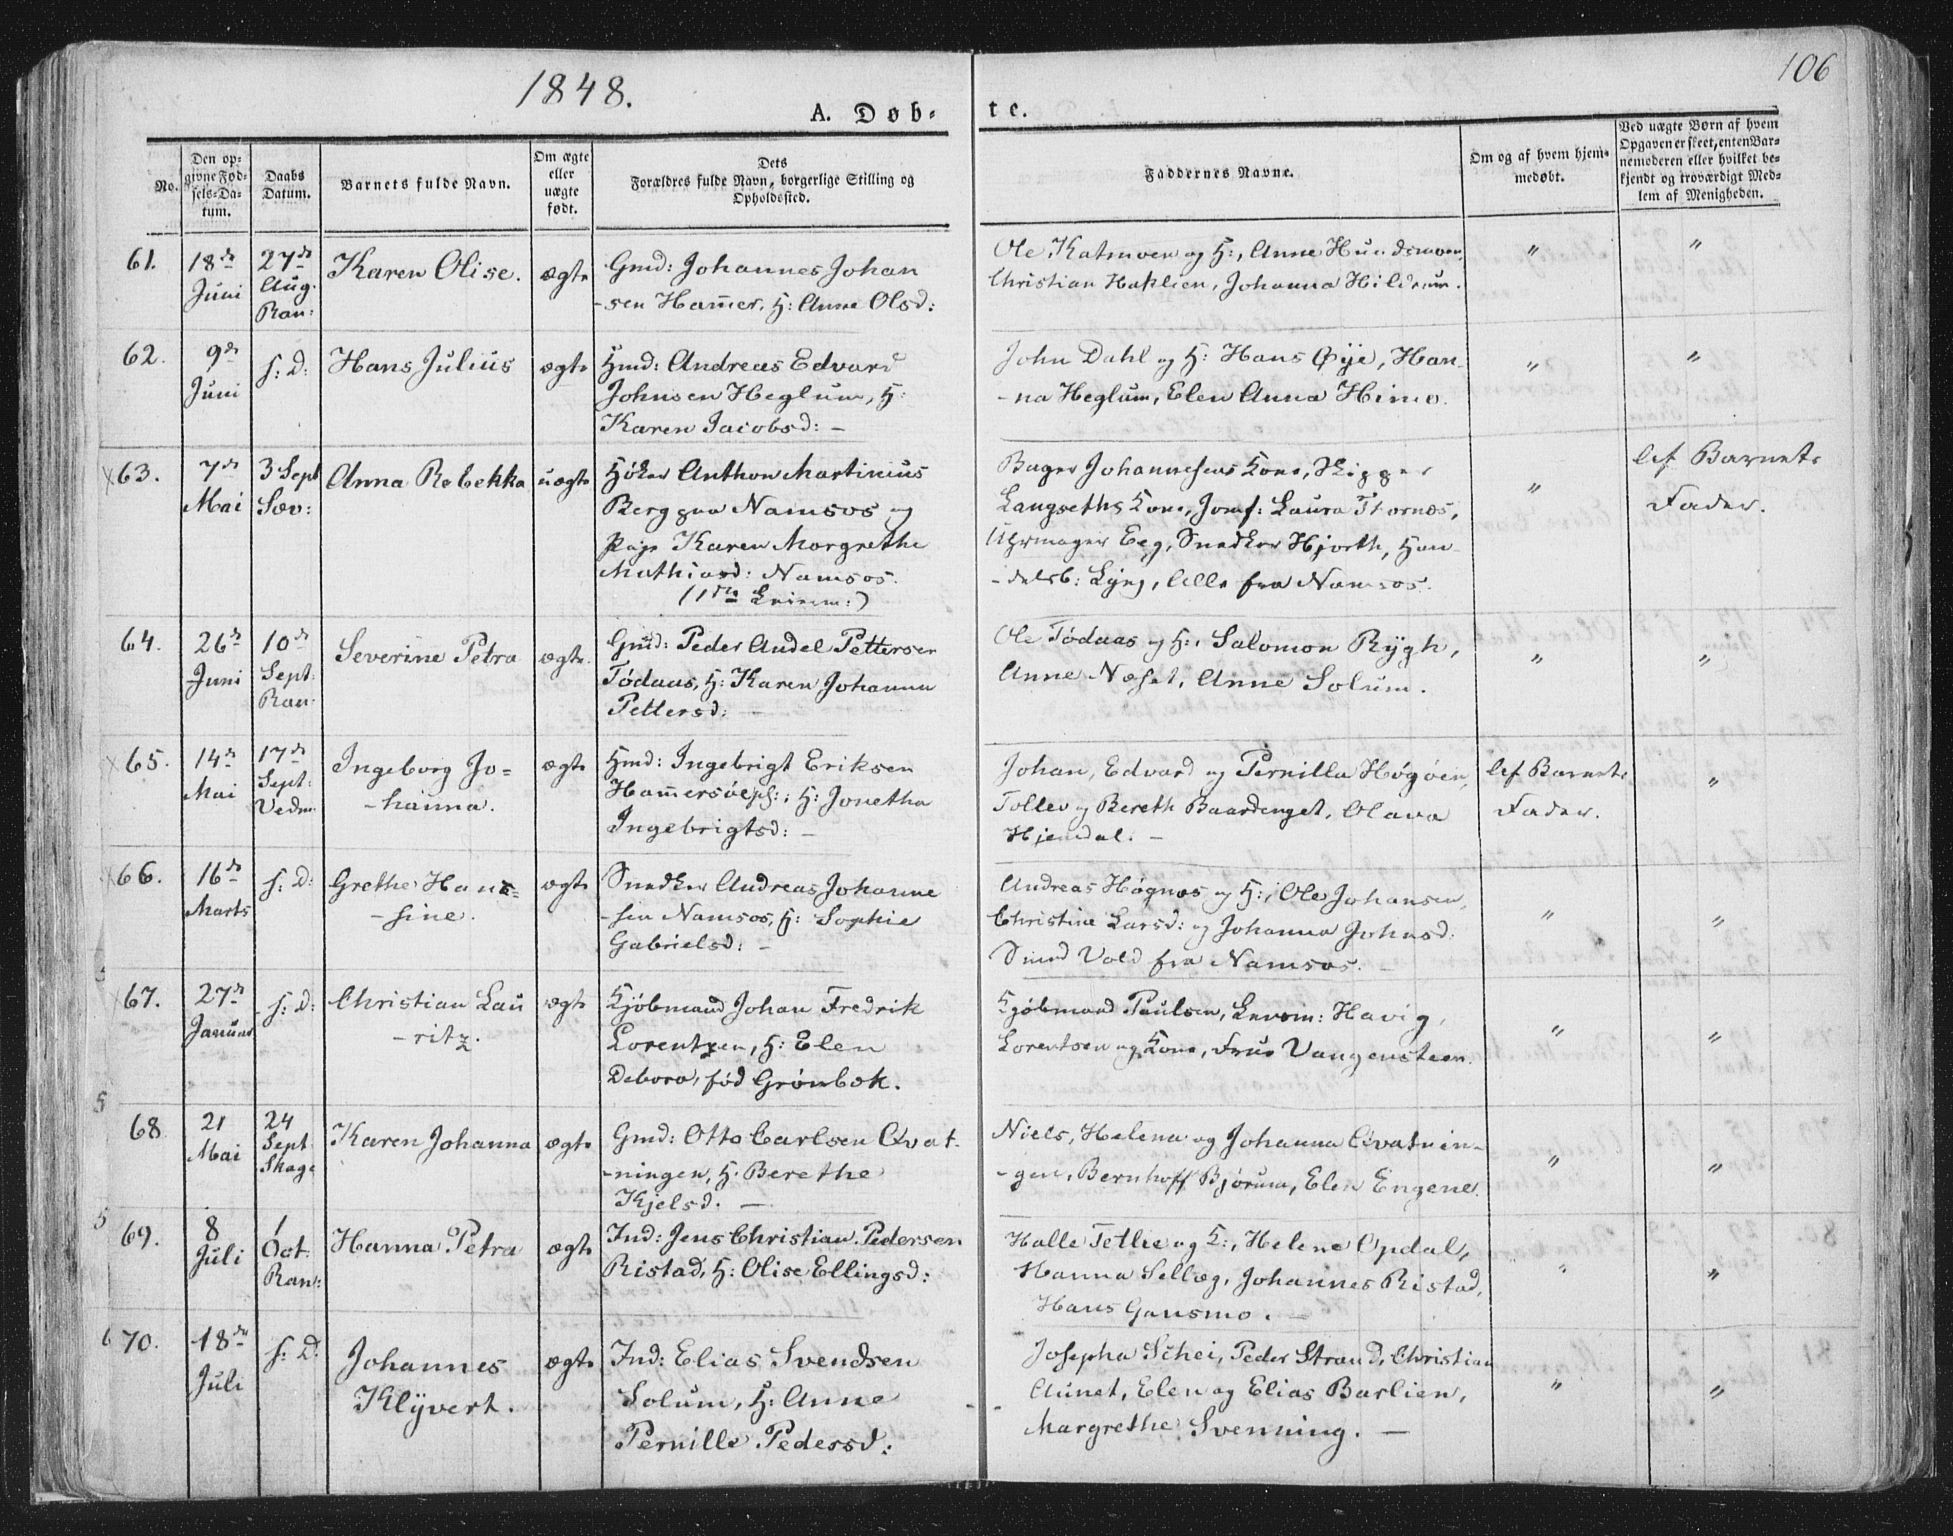 1848.
106
A. Døb-
te.
No.
Den op-
givne Fød-
sels-Da-
tum.
Daabs
Datum.
Barnets fulde Navn.
Om ægte
eller
uægte
født.
Dets
Forældres fulde Navn, borgerlige Stilling og
Opholdssted.
Faddernes Navne.
Om og af hvem hjem-
medøbt.
Ved uægte Børn af hvem
Opgaven er skeet, enten Bar-
nemoderen eller hvilket be-
kjendt og troværdigt Med-
lem af Menigheden.
61.
18de
Juni
27de
Aug.
Ran:
Karen Olise.
ægte
Gmd: Johannes Johan
-sen Hamer, H: Anne Olsd:
Ole Katmoen og H:, Anne Hundsmoen,
Christian Haklien, Johanna Hildrum.
"
"
62.
9de
Juni
s: D:
Hans Julius
ægte
Hmd: Andreas Edvard
Johnsen Heglum, H:
Karen Jacobsd: -
John Dahl og H: Hans Øye, Han-
-na Heglum, Elen Anna Himo.
"
"
63.
7de
Mai
3 Sept
Sæv:
Anna Rebekka
uægte
Høker Anthon Martinius
Berg paa Namsos og
Pige Karen Margrethe
Mathiasd: Namsos.
(1ste Leierm:)
Bager Johannesens Kone, Skipper
Langseths Kone, Jomf: Laura Thornæs,
Uhrmager Eeg, Snedker Hjorth, Han-
-delsb: Lyng, Alle fra Namsos.
"
Af Barnets
Fader.
64.
26de
Juni
10de
Sept:
Ran:
Severine Petra
ægte.
Gmd: Peder Andel Pettersen
Tødaas, H: Karen Johanna
Pettersd: -
Ole Tødaas og H:, Salomon Rygh,
Anne Næset, Anne Solum.
"
"
65.
14de
Mai
17de
Sept:
Vedm
Ingeborg Jo=
-hanna.
ægte
Hmd: Ingebrigt Eriksen
H: Jonetha
Ingebrigtsd: -
Johan, Edvard og Pernilla Høgøen,
Tollev og Bereth Baardenget, Olava
Hjemdal. -
Af Barnets
Fader.
"
66.
16de
Marts
s: D:
Grethe Hans=
-sine.
ægte
Snedker Andreas Johanne
-sen Namsos, H: Sophie
Gabrielsd: -
Andreas Høgnæs og H:, Ole Johansen,
Christine Larsd: og Johanna Johnsd:
Vold fra Namsos. -
"
"
67.
27de
Januar
s: D:
Christian Lau
-ritz.
ægte
Kjøbmand Johan Fredrik
Lorentzen, H: Elen
Debora, fød Grønbek.
Kjøbmand Paulsen, Havig,
Lorentsen og Kone, Frue Vangensteen.
"
"
68.
21
Mai
24
Sept
Skage
Karen Johanna
ægte
Gmd: Otto Carlsen Qvat-
-ningen, H. Berethe
Kjelsd. -
Niels, Helena og Johanna Qvatnin-
-gen, Bernhoff Bjørum, Elen Engene.
"
"
69.
8
Juli
1
Oct:
Ran:
Hanna Petra
ægte
Ind: Jens Christian Pedersen
Ristad, H: Olise Ellingsd:
Halle Tetlie og K:, Helene Opdal,
Hanna Sellæg, Johannes Ristad,
Hans Gansmo. -
"
"
70.
18de
Juli
s: D:
Johannes
Klyvert.
ægte
Ind: Elias Svendsen
Solum, H: Anne
Pernille Pedersd:
Josepha Schei, Peder Strand, Christian
Aunet, Elen og Elias Barlien,
Margrethe Svenning. -
"
"